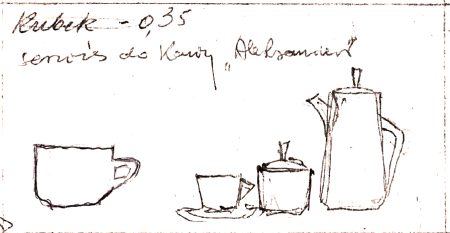 Kubek - 0,35
serwis do Kawy „Aleksander"